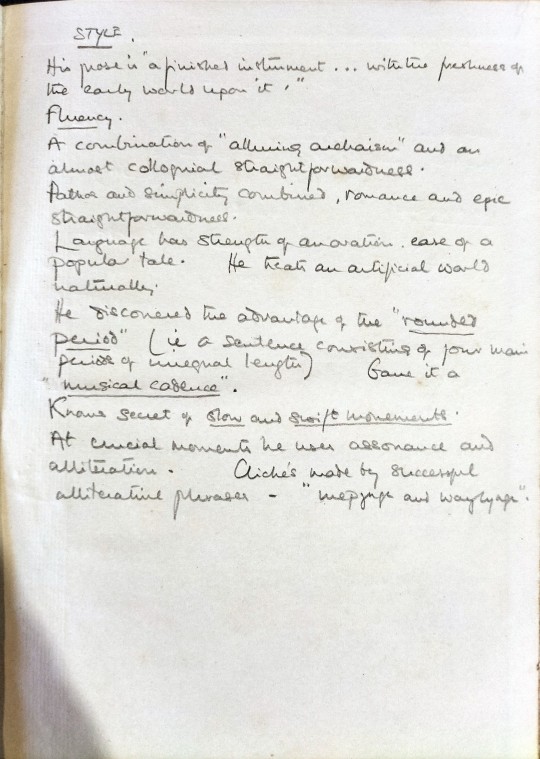 STYLE.
His prose is "a finished instrument ... with the freshness of
the early world upon it."
Fluency.
A combination of "alluring archaism" and an
almost colloquial straightforwardness.
Pathos and simplicity combined, romance and epic
straightforwardness.
Language has strength of an oration. ease of a
popular tale. He treats an artificial world
naturally.
He discovered the advantage of the "rounded
period" (ie a sentence consisting of four main
periods of unequal length) Gave it a
"musical cadence".
Knows secret of slow and swift movements.
At crucial moments he uses assonance and
alliteration. Clichés made by successful
alliterative phrases - " and